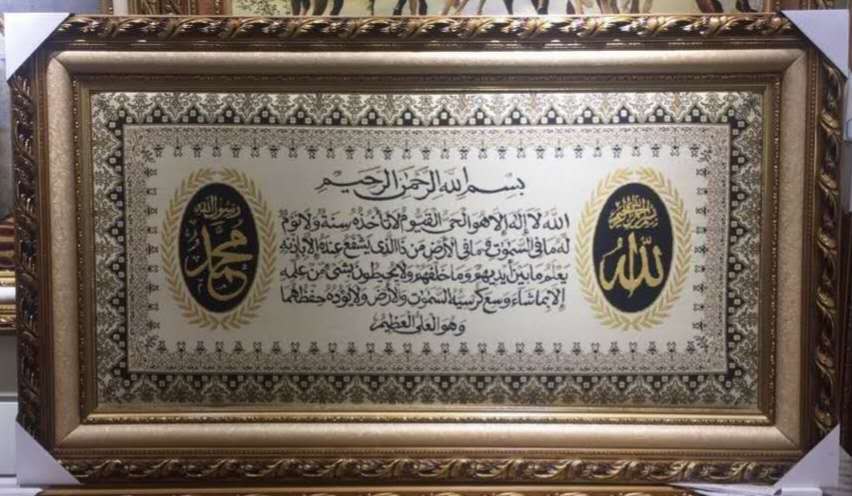 بسم الله الرحمن الرحيم
الله لا إله إلا هو الحي القيوم لا تأخذه سنة ولا نوم
له ما في السموت وما في الأرض من ذا الذي يشفع عنده إلا بإذنه
يعلم ما بين أيديهم وما خلفهم ولا يحيطون بشئ من علمه
إلا بما شاء وسع كرسيه السموت والأرض ولا يؤده حفظهما
وهو العلي العظيم
بسم الله الرحمن الرحيم
الله
رسول الله
محمد